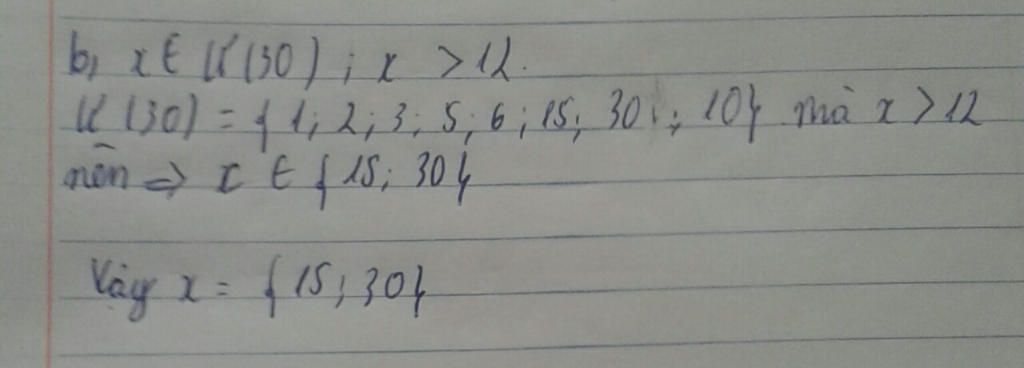 b, x ∈ Ư(30) ; x > 12.
Ư(30) = { 1; 2; 3; 5; 6; 15; 30 ; 10} mà x > 12
nên ⇒ x ∈ { 15; 30}
Vậy x = { 15; 30}